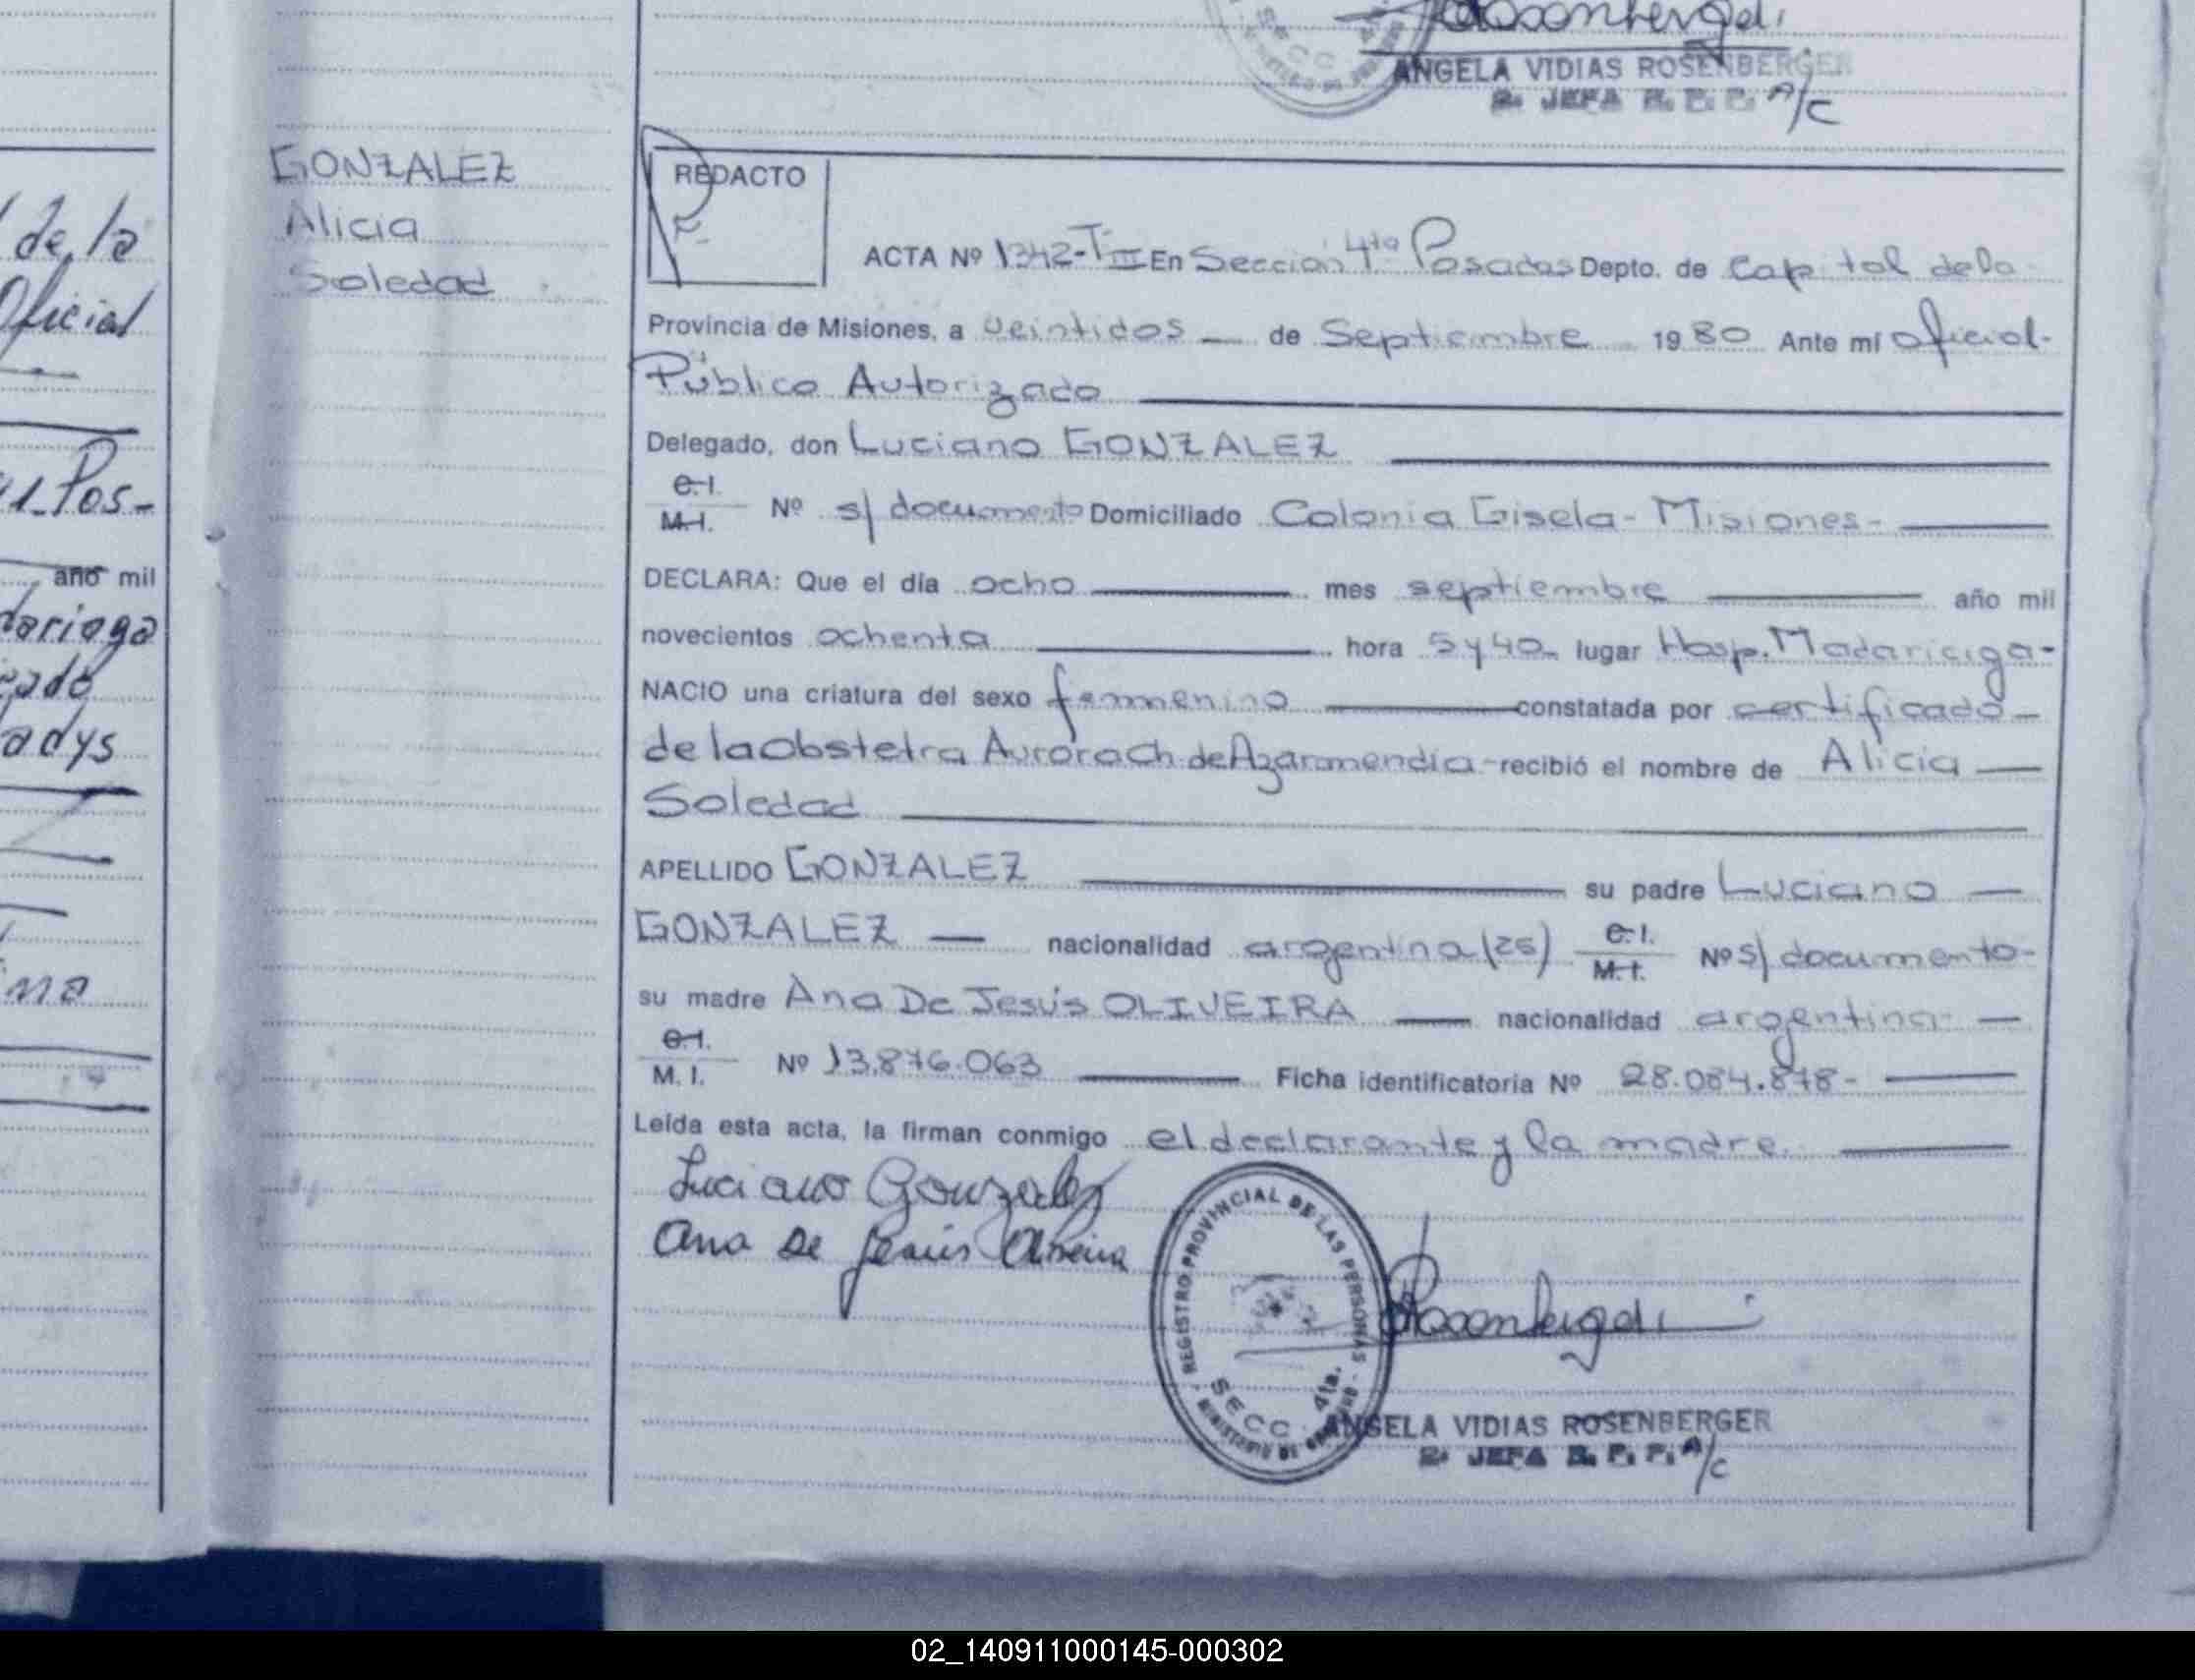 de la
Oficial
Pos-
año mil
dariaga
adys
GONZALEZ
Alicia
Soledad
ANGELA VIDIAS ROSENBERGER
2. JEFA R. P. P. A/C
REDACTO
ACTA Nº 1342-TIII En Sección 4ta Posadas Depto. de Capital de la
Provincia de Misiones, a veintidos — de Septiembre 1980 Ante mí Oficial-
Público Autorizado
Delegado, don Luciano GONZALEZ
C.I.
M.I. Nº s/documento Domiciliado Colonia Gisela - Misiones-
DECLARA: Que el día ocho mes septiembre año mil
novecientos ochenta hora 5 y 40 lugar Hosp. Madariaga-
NACIO una criatura del sexo femenino constatada por certificado
de la obstetra Aurora Ch. de Azarmendia - recibió el nombre de Alicia
Soledad
APELLIDO GONZALEZ su padre Luciano
GONZALEZ — nacionalidad argentina (25) C.I.
M.I. Nº s/documento-
su madre Ana De Jesús OLIVEIRA — nacionalidad argentina-
C.I.
M.I. Nº 13.876.063 Ficha identificatoria Nº 28.084.878-
Leída esta acta, la firman conmigo el declarante y la madre.
Luciano Gonzalez
Ana De Jesús Oliveira
REGISTRO PROVINCIAL DE LAS PERSONAS - MINISTERIO DE GOBIERNO -
SECC. 4ta.
ANGELA VIDIAS ROSENBERGER
2. JEFA R. P. P. A/C
02_140911000145-000302